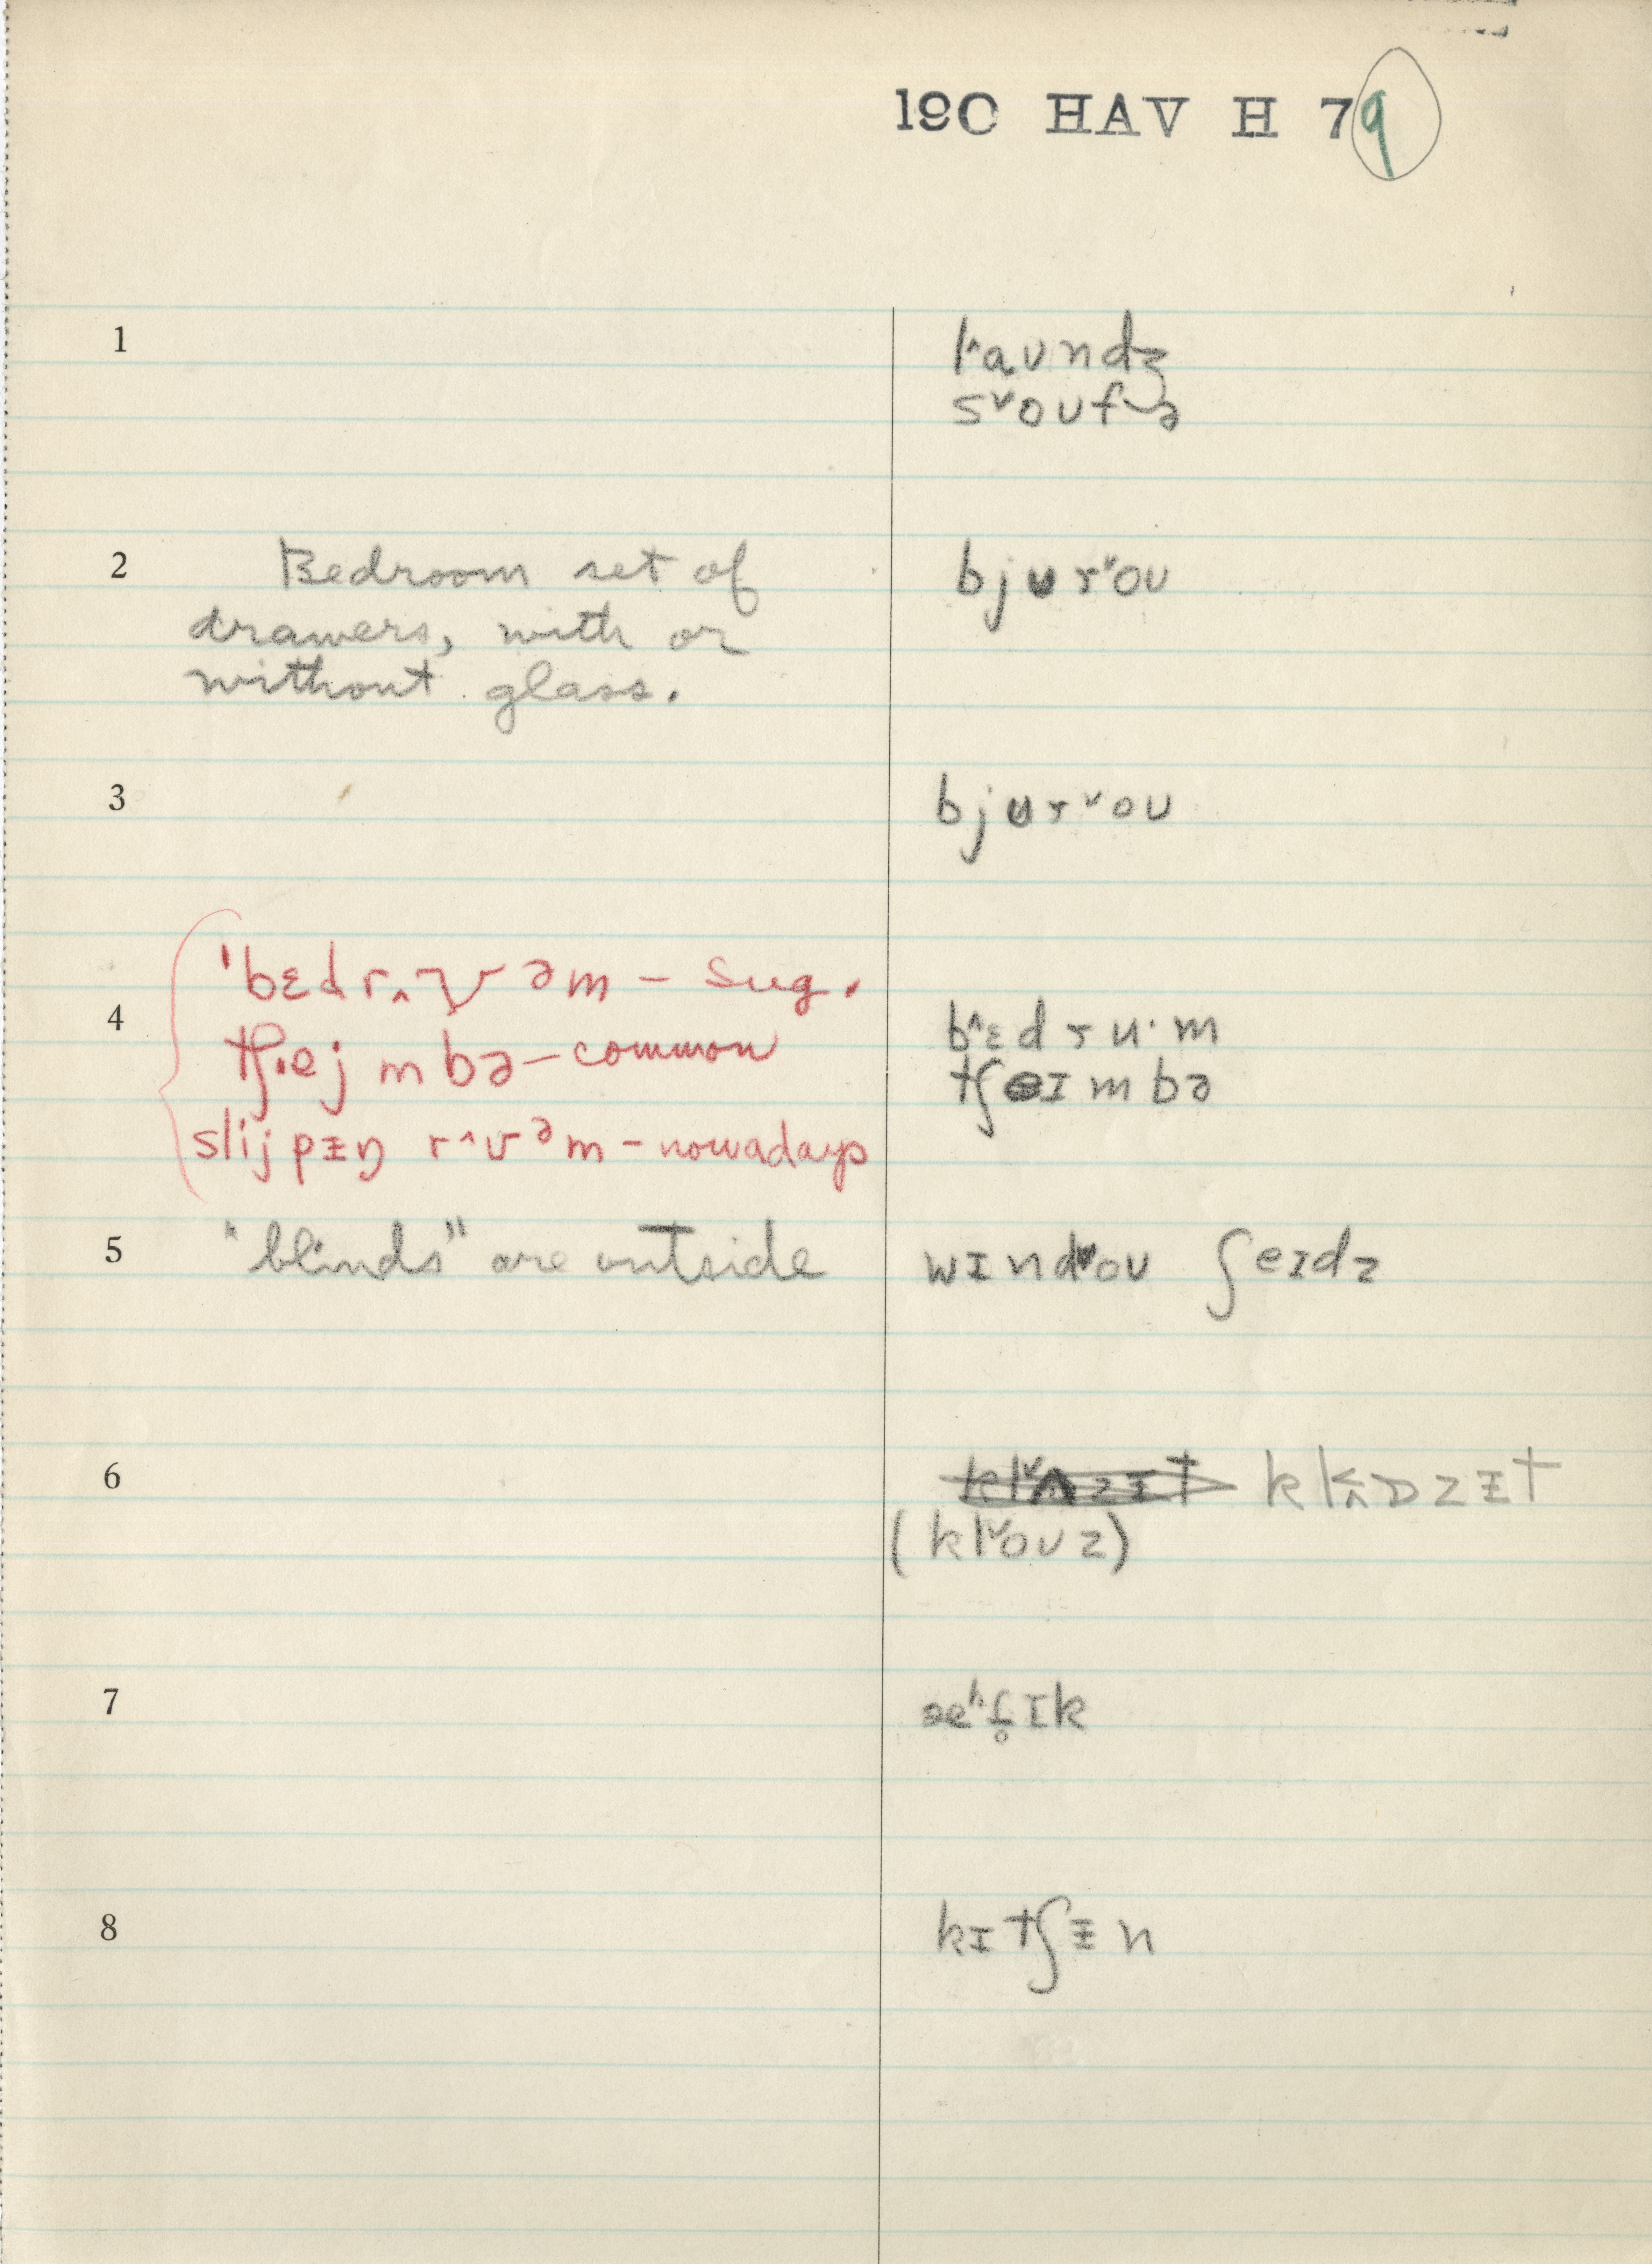 19C HAV H 79
1
l˄aʊndʒ
s˅oʊfə
2 Bedroom set of
drawers, with or
without glass.
bjʊr˅oʊ
3 bjʊr˅oʊ
4
'bɛdr˄ʊəm – sug.
tʃ.ejmbə – common
slijpᵻŋ r˄ʊᵊm – nowadays
b˄ɛdru·m
tʃeɪmbə
5 "blinds" are outside wɪnd˅oʊ ʃeɪdz
6 kl˄ɒzᵻt
(kl˅oʊz)
7 æ˄f̬ɪk
8 kɪtʃᵻn